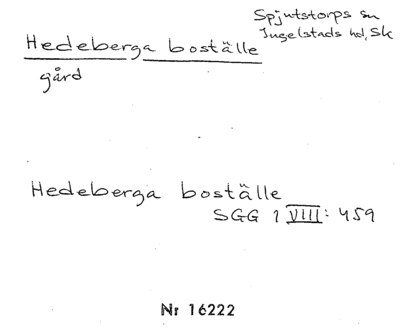 Spjutstorps sn
Ingelstads hd, Sk
Hedeberga boställe
gård
Hedeberga boställe
SGG 1 VIII: 459
Nr 16222